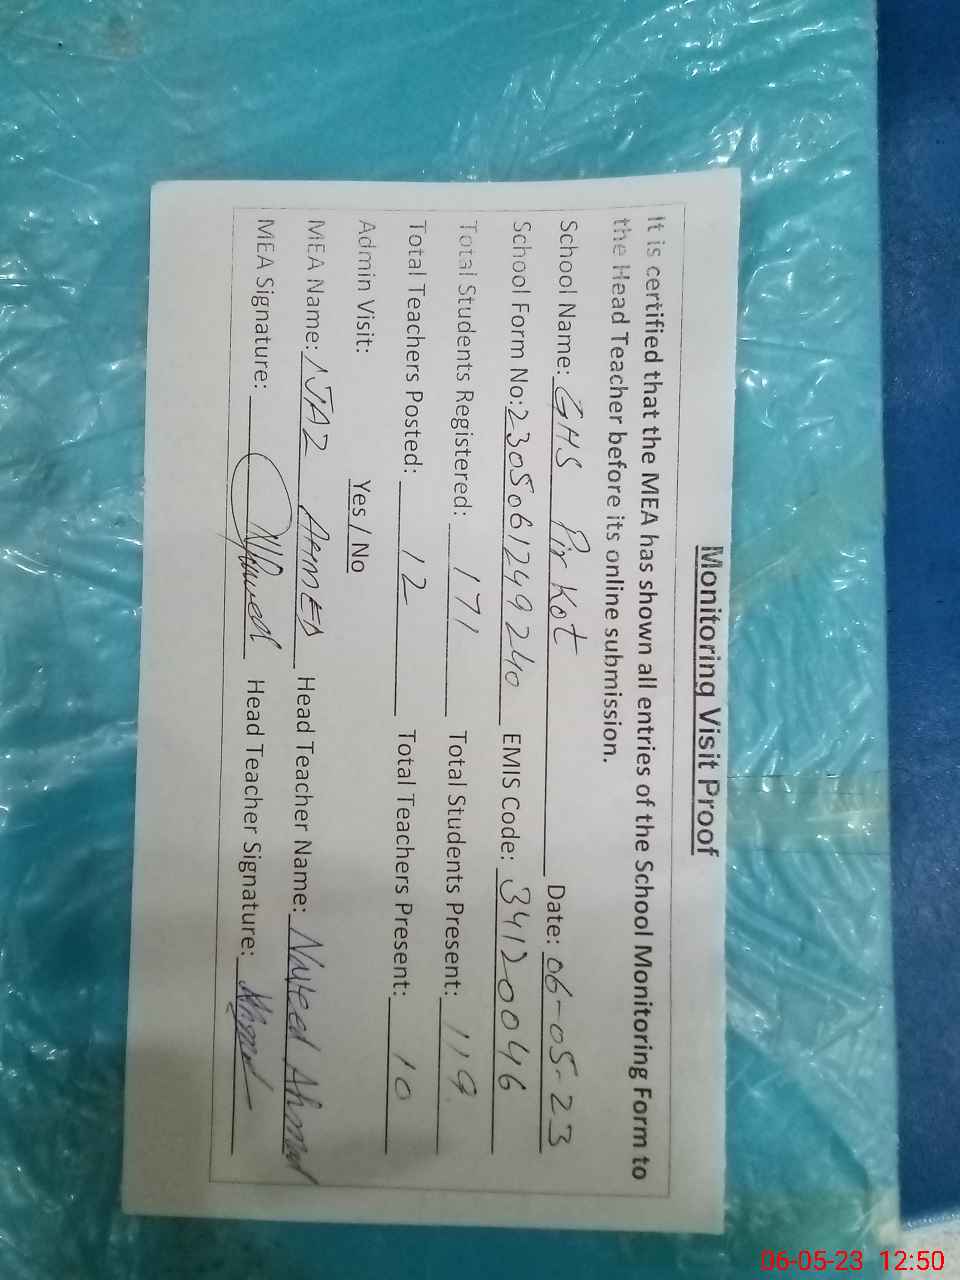 Monitoring Visit Proof
It is certified that the MEA has shown all entries of the School Monitoring Form to
the Head Teacher before its online submission.
School Name: GHS Pir Kot Date: 06-05-23
School Form No: 23050612499240 EMIS Code: 34120046
Total Students Registered: 171 Total Students Present: 119
Total Teachers Posted: 12 Total Teachers Present: 10
Admin Visit: Yes / No
MEA Name: IJAZ AHMED Head Teacher Name: Naveed Ahmad
MEA Signature: Head Teacher Signature:
06-05-23 12:50